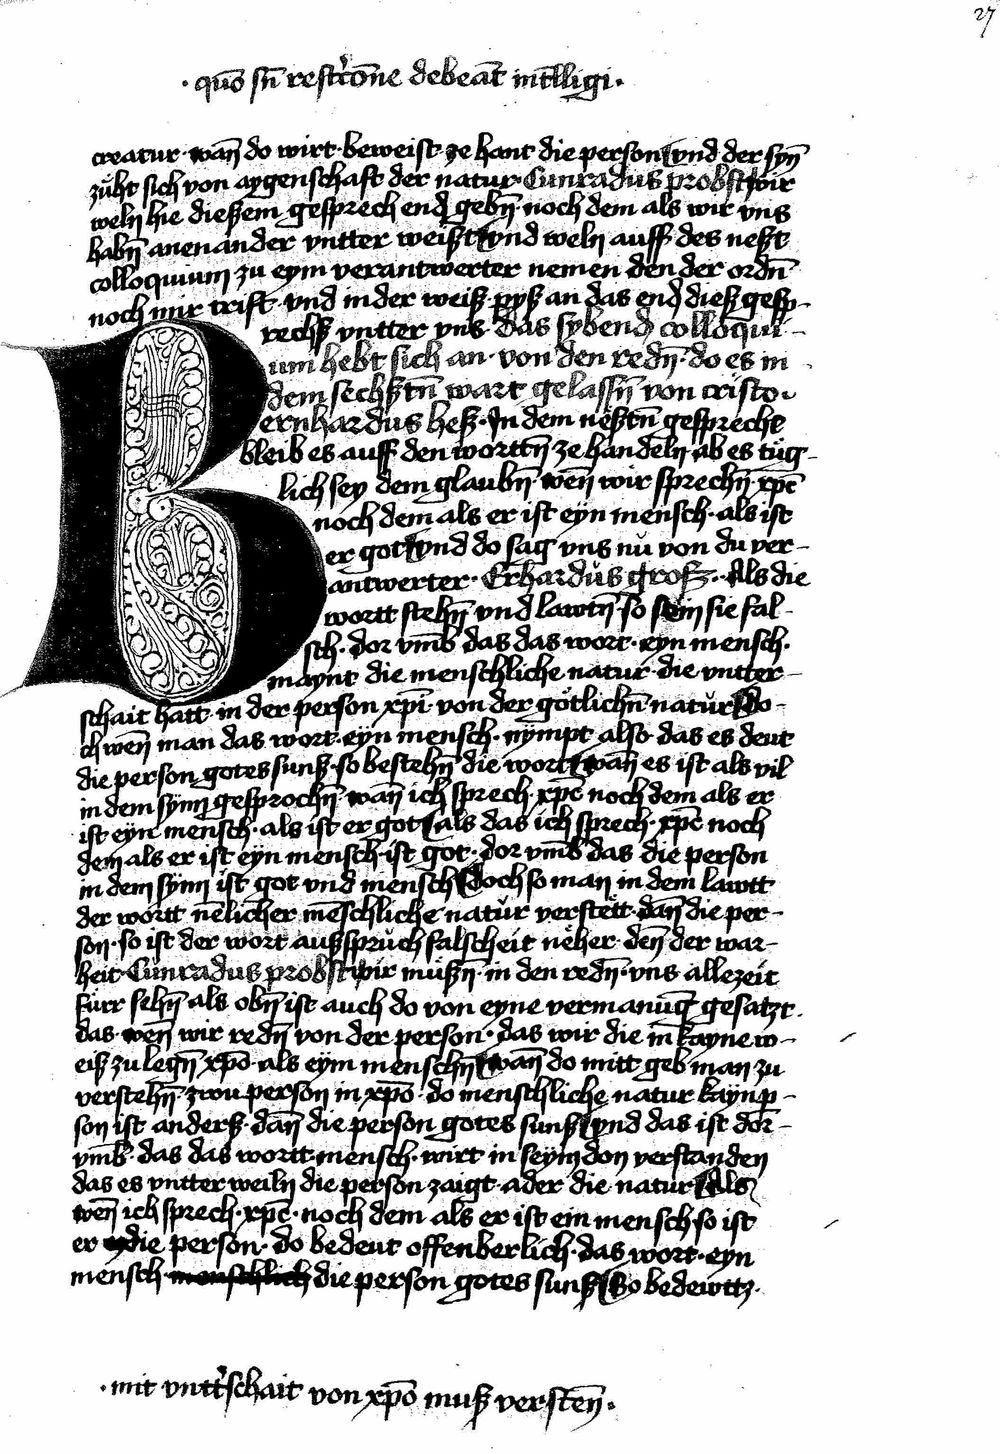 27
· quō sn̄ restc̓ōne debeāt intl̄ligi ·
creatur · wan̄ do wirt · beweist ze hant die person vnd der syn̄
zůht sich von aygenschaft der natur · Cunradus probst wir
weln hie dießem gesprech end gebn̄ · noch dem als wir vns
habn̄ anenander vntter weißt vnd weln auff des neßt
colloquium zu eym verantwerter nemen den der ordn̄
noch mir trift · vnd in der weiß pyß an das end dieß gesp-
rechß vntter vns · das sybend colloqui-
um hebt sich an · von den redn̄ · do es in
dem sechßtn̄ wart gelassn̄ von cristo ·
Bernhardus heß · In dem neßtn̄ gesprecht
bleib es auff den worttn̄ ze handeln · ab es tüg-
lich sey dem glaubn̄ · wen̄ wir sprechn̄ · xp̄c
noch dem als er ist eyn mensch · als ist
er got vnd do sag vns nů von du ver-
antwerter · Erhardůs groß · Als die
wortt stehn̄ vnd lawtn̄ · so sein sie fal-
sch · dor vm̄b das das wort · eyn mensch ·
maynt die menschliche natur · die vntter-
schait hatt · in der person xp̄i · von der götlichn̄ natůr Do-
ch wen̄ man das wort · eyn mensch · nympt also · das es deut
die person gotes sunß · so bestehn̄ die wort wan̄ es ist als vil
in dem synn gesprochn̄ · wan̄ ich sprech · xp̄c noch dem als er
ist eyn mensch · als ist er got als das ich sprech · xp̄c noch
dem als er ist eyn mensch · ist got · dor vm̄b das die person
in dem synn ist got vnd mensch Doch so man in dem lawtt
der wortt nēlicher mēschliche natůr verstett · dan̄ die per-
son · so ist der wort außspruch falscheit neher · den̄ der war-
heit · Cunradus probst wir müßn̄ · in den redn̄ · vns allezeit
fürr sehn̄ als obn̄ ist auch do von eyne vermanūg gesatzt ·
das · wen̄ wir redn̄ von der person · das wir die in̄ kayne w-
eiß zu legn̄ xp̄o · als eym menschn̄ wan̄ do mitt geb man zu
verstehn̄ · zwu person in xp̄o · do menschliche natur kayn p-
son ist anderß · dan̄ die person gotes sunß vnd das ist dor-
vm̄b · das das wortt · mensch · wirt in seym don verstanden
das es vntter weiln die person zaigt · ader die natur Als
wen̄ ich sprech · xp̄c · noch dem als er ist ein mensch so ist
er die person · do bedeut offenberlich · das wort · eyn
mensch · menschlich die person gotes sunß So bedewttz ·
· mit vntt̓schait von xp̄o muß verstēn ·